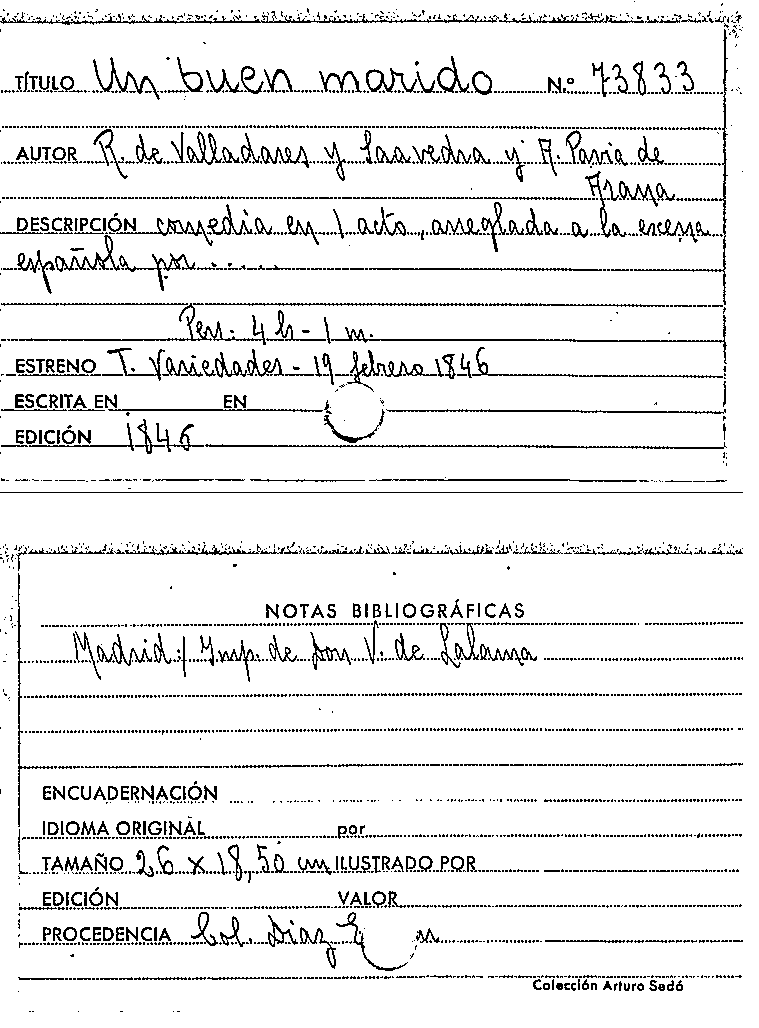 TÍTULO Un buen marido N.º 73833
AUTOR R. de Valladares y Saavedra y A. Pavia de
Arana
DESCRIPCIÓN comedia en 1 acto, arreglada a la escena
española por .....
Pers: 4 h - 1 m.
ESTRENO T. Variedades - 19 febrero 1846
ESCRITA EN EN
EDICIÓN 1846
NOTAS BIBLIOGRÁFICAS
Madrid:/ Imp. de Don V. de Lalama
ENCUADERNACIÓN
IDIOMA ORIGINAL por
TAMAÑO 26 x 18,50 cm ILUSTRADO POR
EDICIÓN VALOR
PROCEDENCIA Col. Diaz
Colección Arturo Sedó